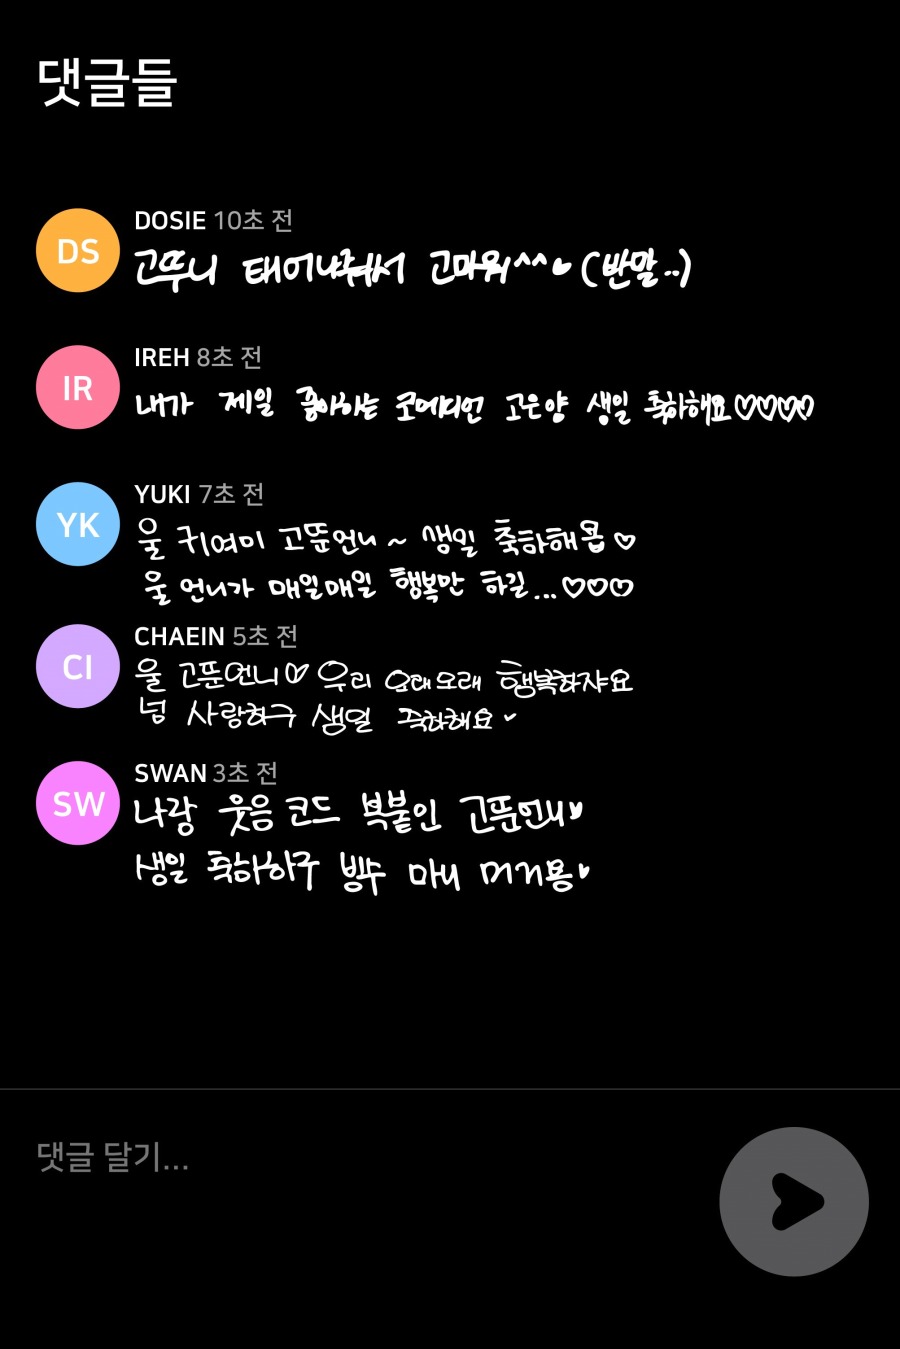 댓글들
DS
DOSIE 10초 전
고뚜니 태어나줘서 고마워^^♥(반말..)
IR
IREH 8초 전
내가 제일 좋아하는 코메디언 고은양 생일 축하해요♡♡♡♡
YK
YUKI 7초 전
울 귀여미 고뚠언니~ 생일 축하해욥♡
울 언니가 매일매일 행복만 하길...♡♡♡
CI
CHAEIN 5초 전
울 고뚠언니♡ 우리 오래오래 행복하쟈요
넘 사랑하구 생일 축하해요♥
SW
SWAN 3초 전
나랑 웃음 코드 복붙인 고뚠언니♥
생일 축하하구 빙수 마니 머거용♥
댓글 달기...